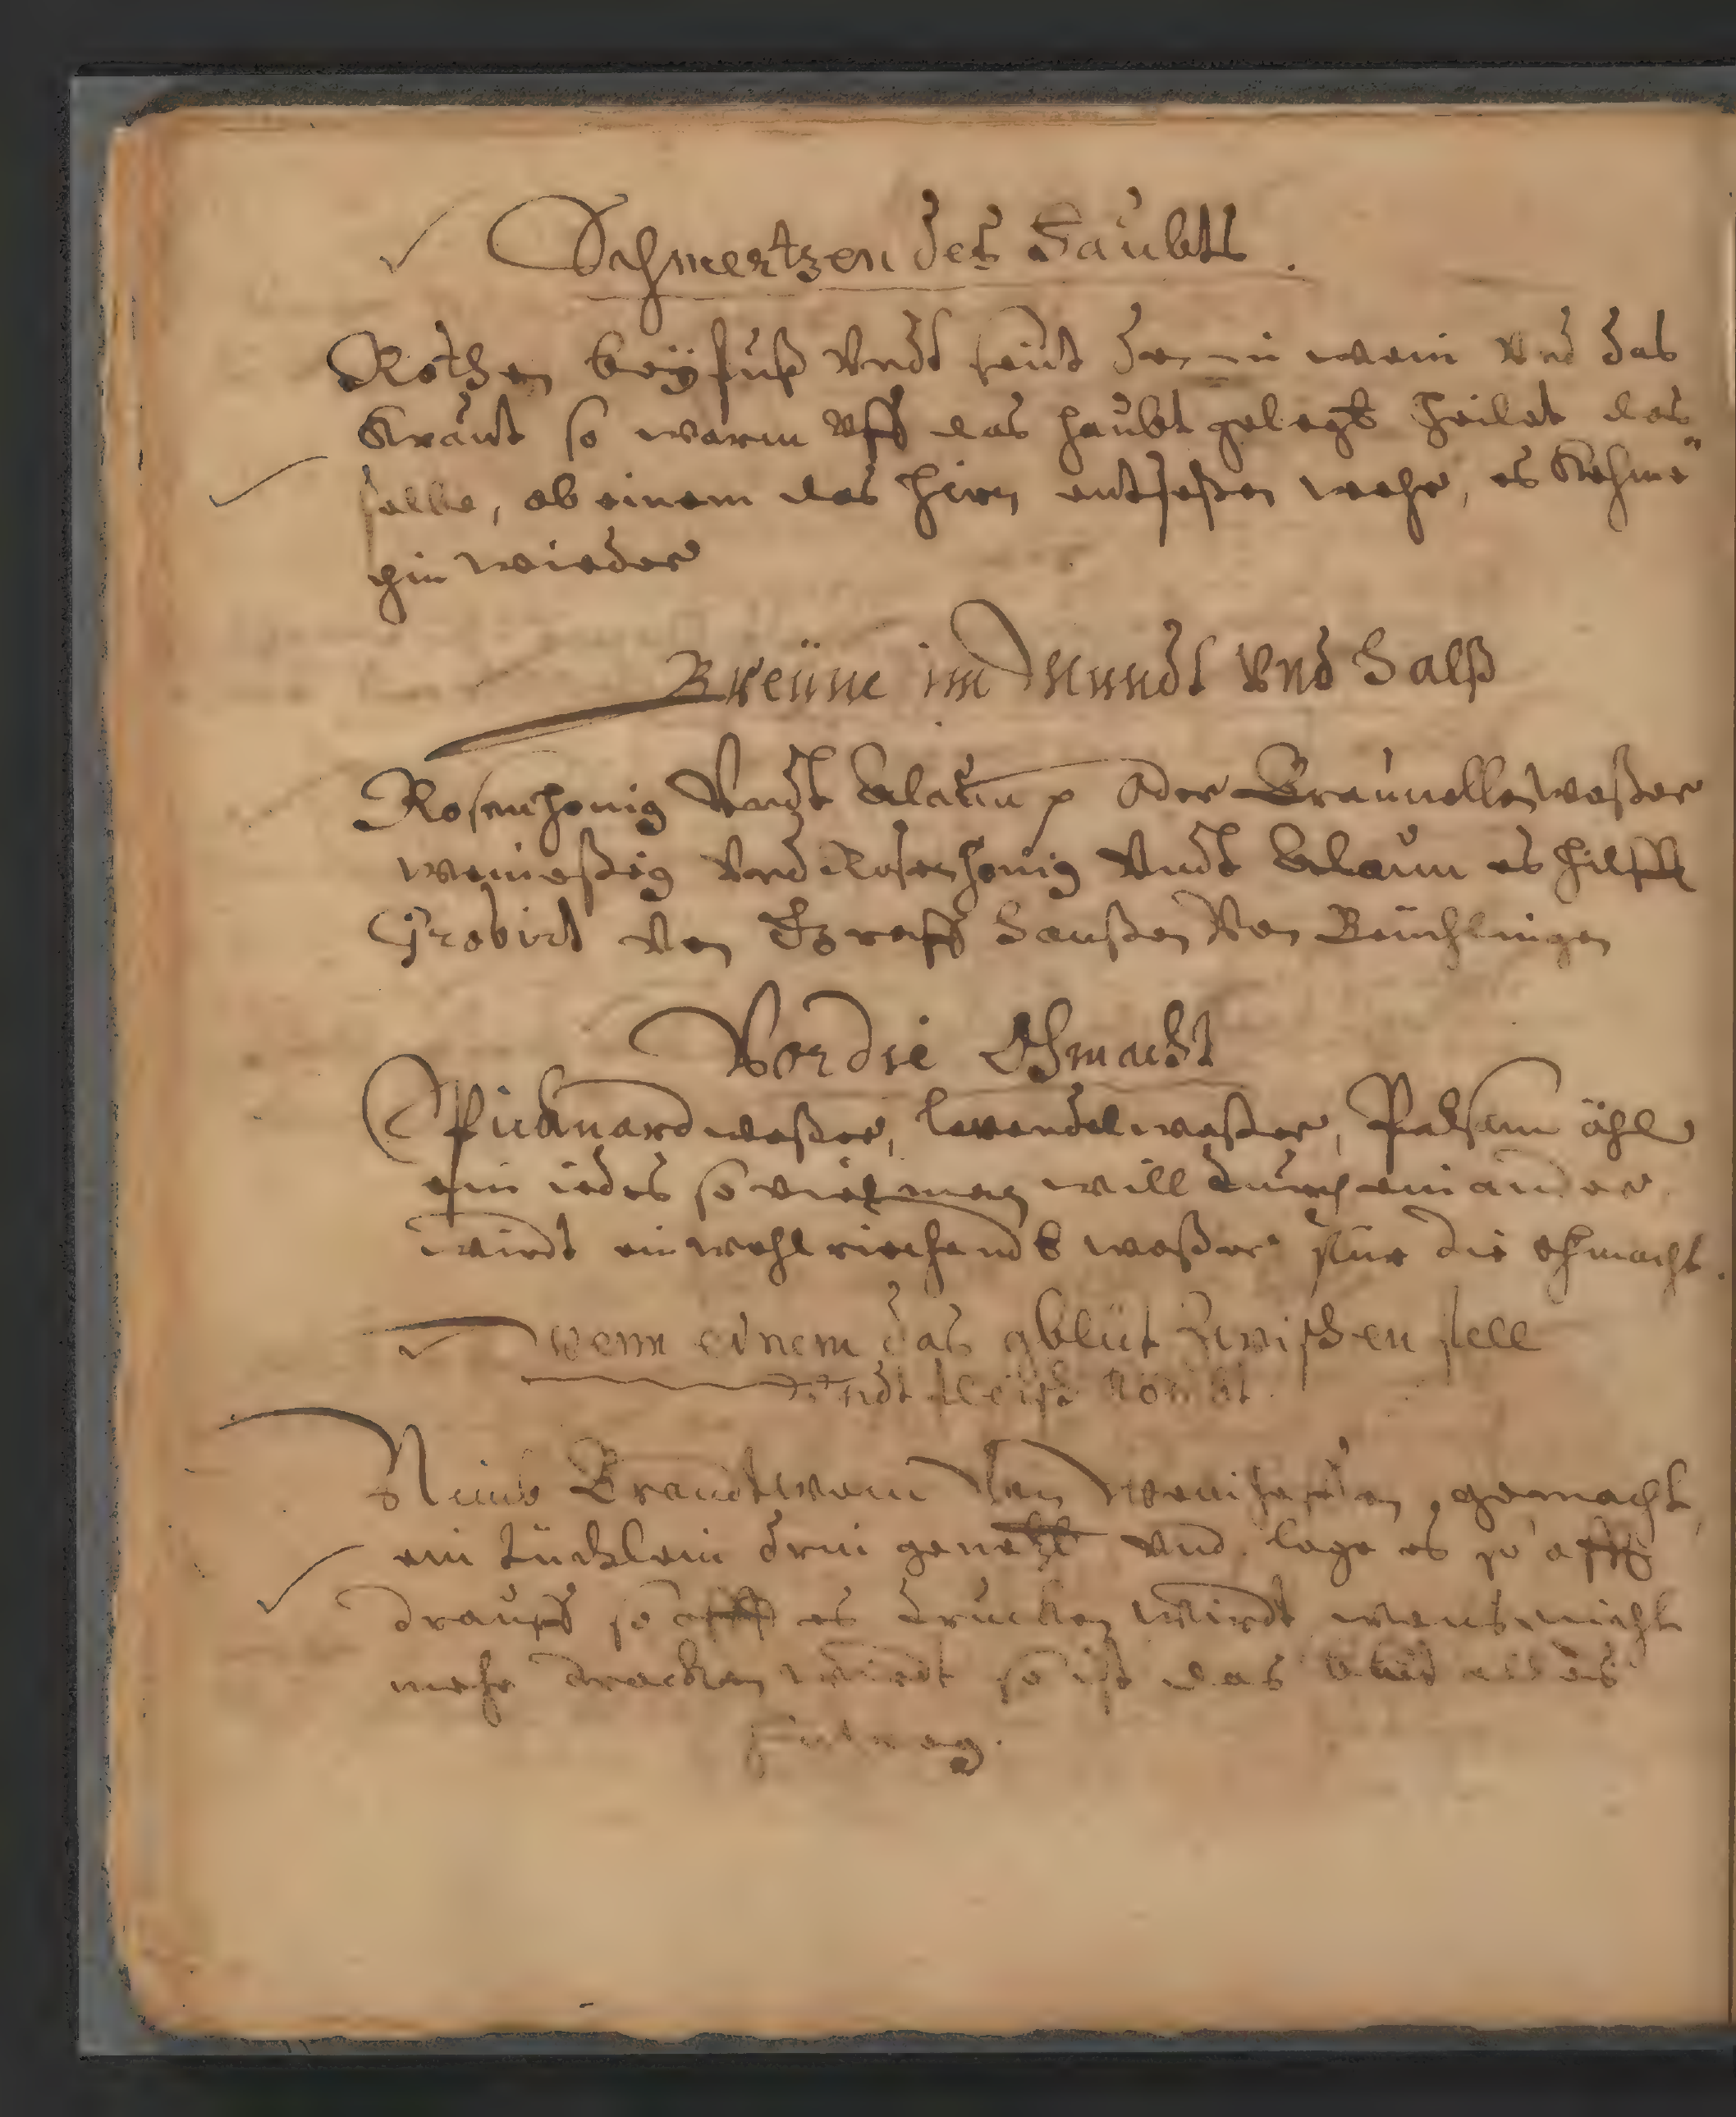 Schmertzen des Haubts.
Rothen beÿfuß Vndt seudt den in wein Vnd das
Kraut so warm Vff das haubt gelegt heilet das
selbe, ob einem das hirn entseßen wehr, es Kehme
hin wieder
Breüne im Mundt Vnd Halß
Rosenhonig Vndt Alaun oder Braunellenwaßer
weineßig Vnd Rosenhonig Vndt Alaun es hilfft
Probirt Von Graff Hanßen Von Beuchlingen
Vor die Ohmacht
Spicanard waßer, lavendel waßer, Palsam öhl
ein iedes so viel man will durch einander
wirdt ein wohl riechendt waßer für die ohmacht.
wenn einem das geblüt Zwischen fell
Vndt fleisch kombt.
Nimb Brandtwein Von weinhefen, gemacht,
ein tüchlein drin genetzt Vnd lege es so offt
drauff so offt es trucken wirdt wens nicht
mehr drocken wirdt so ist das blut alles
hinweg.